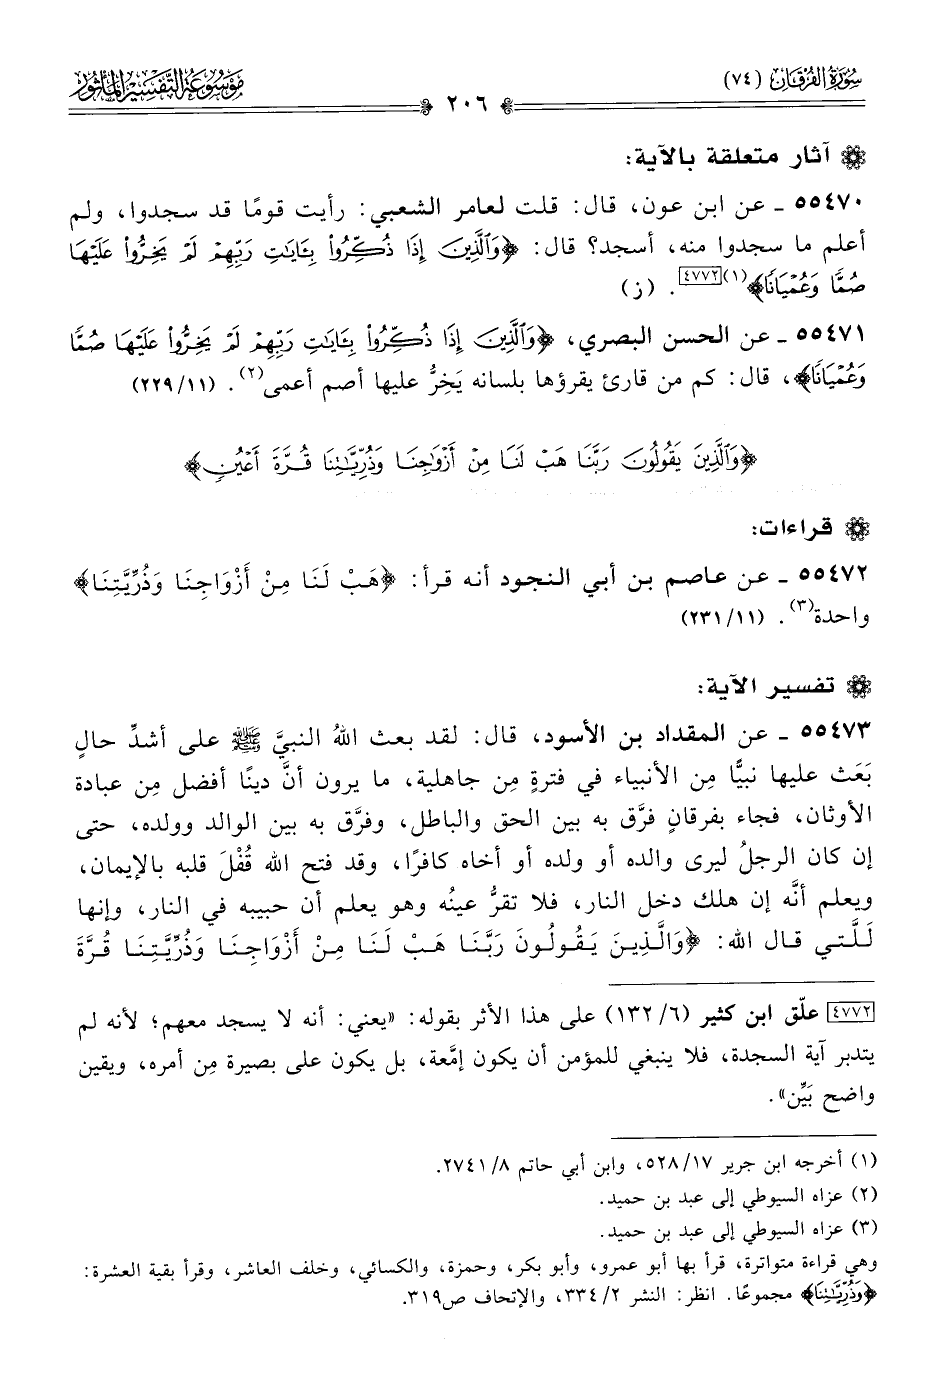 سورة الفرقان (٧٤)
٢٠٦
موسوعة التفسير المأثور
آثار متعلقة بالآية:
٥٥٤٧٠ ـ عن ابن عون، قال: قلت لعامر الشعبي: رأيت قومًا قد سجدوا، ولم
أعلم ما سجدوا منه، أسجد؟ قال: ﴿وَٱلَّذِينَ إِذَا ذُكِّرُوا۟ بِـَٔايَٰتِ رَبِّهِمْ لَمْ يَخِرُّوا۟ عَلَيْهَا
صُمًّا وَعُمْيَانًا﴾(١)[٤٧٧٢]. (ز)
٥٥٤٧١ ـ عن الحسن البصري، ﴿وَٱلَّذِينَ إِذَا ذُكِّرُوا۟ بِـَٔايَٰتِ رَبِّهِمْ لَمْ يَخِرُّوا۟ عَلَيْهَا صُمًّا
وَعُمْيَانًا﴾، قال: كم من قارئ يقرؤها بلسانه يَخِرُّ عليها أصم أعمى(٢). (٢٢٩/١١)
﴿وَٱلَّذِينَ يَقُولُونَ رَبَّنَا هَبْ لَنَا مِنْ أَزْوَٰجِنَا وَذُرِّيَّٰتِنَا قُرَّةَ أَعْيُنٍ﴾
قراءات:
٥٥٤٧٢ ـ عن عاصم بن أبي النجود أنه قرأ: ﴿هَبْ لَنَا مِنْ أَزْوَاجِنَا وَذُرِّيَّتِنَا﴾
واحدة(٣). (٢٣١/١١)
تفسير الآية:
٥٥٤٧٣ ـ عن المقداد بن الأسود، قال: لقد بعث اللهُ النبيَّ ﷺ على أشدِّ حالٍ
بَعَث عليها نبيًّا مِن الأنبياء في فترةٍ مِن جاهلية، ما يرون أنَّ دينًا أفضل مِن عبادة
الأوثان، فجاء بفرقانٍ فرَّق به بين الحق والباطل، وفرَّق به بين الوالد وولده، حتى
إن كان الرجلُ ليرى والده أو ولده أو أخاه كافرًا، وقد فتح الله قُفْلَ قلبه بالإيمان،
ويعلم أنَّه إن هلك دخل النار، فلا تقرُّ عينُه وهو يعلم أن حبيبه في النار، وإنها
لَلَّتي قال الله: ﴿وَالَّذِينَ يَقُولُونَ رَبَّنَا هَبْ لَنَا مِنْ أَزْوَاجِنَا وَذُرِّيَّتِنَا قُرَّةَ
[٤٧٧٢] علّق ابن كثير (٦/ ١٣٢) على هذا الأثر بقوله: «يعني: أنه لا يسجد معهم؛ لأنه لم
يتدبر آية السجدة، فلا ينبغي للمؤمن أن يكون إمَّعة، بل يكون على بصيرة مِن أمره، ويقين
واضح بَيِّن».
(١) أخرجه ابن جرير ١٧/ ٥٢٨، وابن أبي حاتم ٨/ ٢٧٤١.
(٢) عزاه السيوطي إلى عبد بن حميد.
(٣) عزاه السيوطي إلى عبد بن حميد.
وهي قراءة متواترة، قرأ بها أبو عمرو، وأبو بكر، وحمزة، والكسائي، وخلف العاشر، وقرأ بقية العشرة:
﴿وَذُرِّيَّٰتِنَا﴾ مجموعًا. انظر: النشر ٢/ ٣٣٤، والإتحاف ص٣١٩.